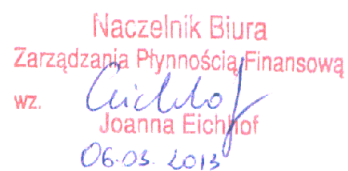 Naczelnik Biura
Zarządzania Płynnością Finansową
wz. Eichhof
Joanna Eichhof
06.03.2013